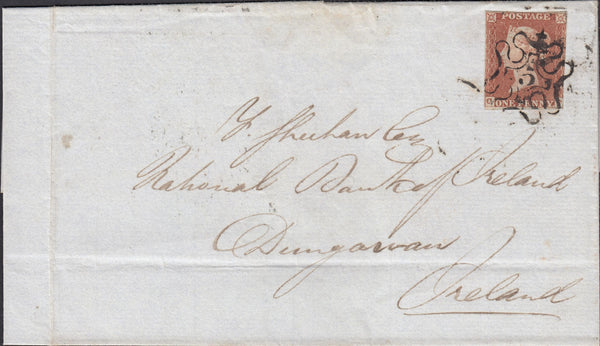 POSTAGE
ONE PENNY
Sheehan Esq
National Bank of Ireland
Dungarvan
Ireland